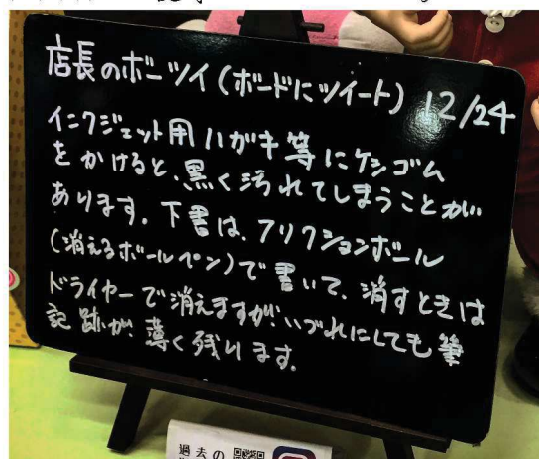 店長のボーツイ(ボードにツイート) 12/24
インクジェット用ハガキ等にケシゴム
をかけると、黒く汚れてしまうことが
あります。下書は、フリクションボール
(消えるボールペン)で書いて、消すときは
ドライヤーで消えますが、いづれにしても筆
記跡が、薄く残ります。
過去の